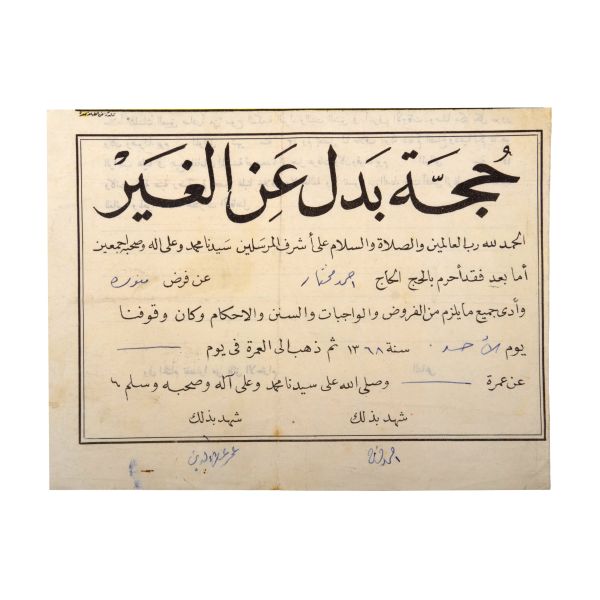 حُجَّة بَدَل عَنِ الغَيْر
الحمد لله رب العالمين والصلاة والسلام على أشرف المرسلين سيدنا محمد وعلى اله وصحبه اجمعين
أما بعد فقد أحرم بالحج الحاج احمد مختار عن فرض منوره
وأدى جميع ما يلزم من الفروض والواجبات والسنن والاحكام وكان وقوفنا
يوم الأحد سنة ١٣٦٨ ثم ذهب الى العمرة فى يوم
عن عمرة وصلى الله على سيدنا محمد وعلى آله وصحبه وسلم ٦
شهد بذلك شهد بذلك
احمد